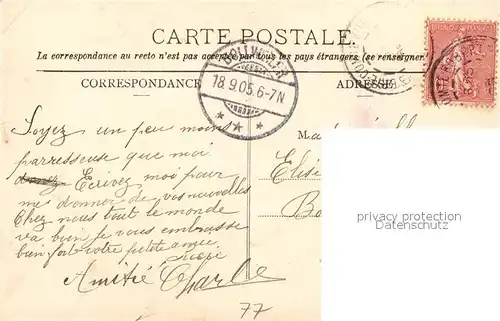 CARTE POSTALE
La correspondance au recto n'est pas acceptée par tous les pays étrangers (se renseigner
CORRESPONDANCE
ADRESSE
BOLLWEILER
18.9.05.6-7N
Soyez un peu moins
parresseuse que moi
Ecrivez moi pour
me donner de vos nouvelles
Chez nous tout le monde
va bien je vous embrasse
bien fort votre petite amie
Amitié Charles
77
Elise
privacy protection
Datenschutz